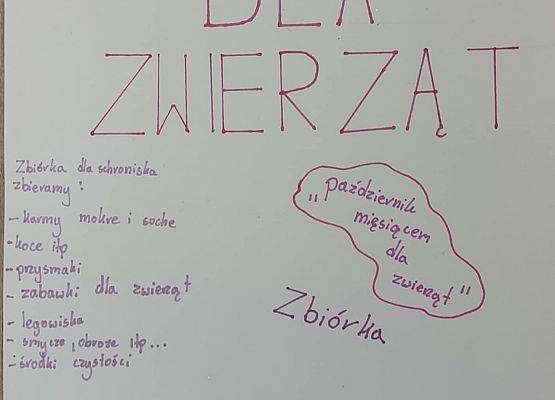 DLA
ZWIERZĄT
Zbiórka dla schroniska
zbieramy :
- karmy mokre i suche
- koce itp
- przysmaki
- zabawki dla zwierząt
- legowiska
- smycze, obroże itp...
- środki czystości
„październik
miesiącem
dla
zwierząt"
Zbiórka